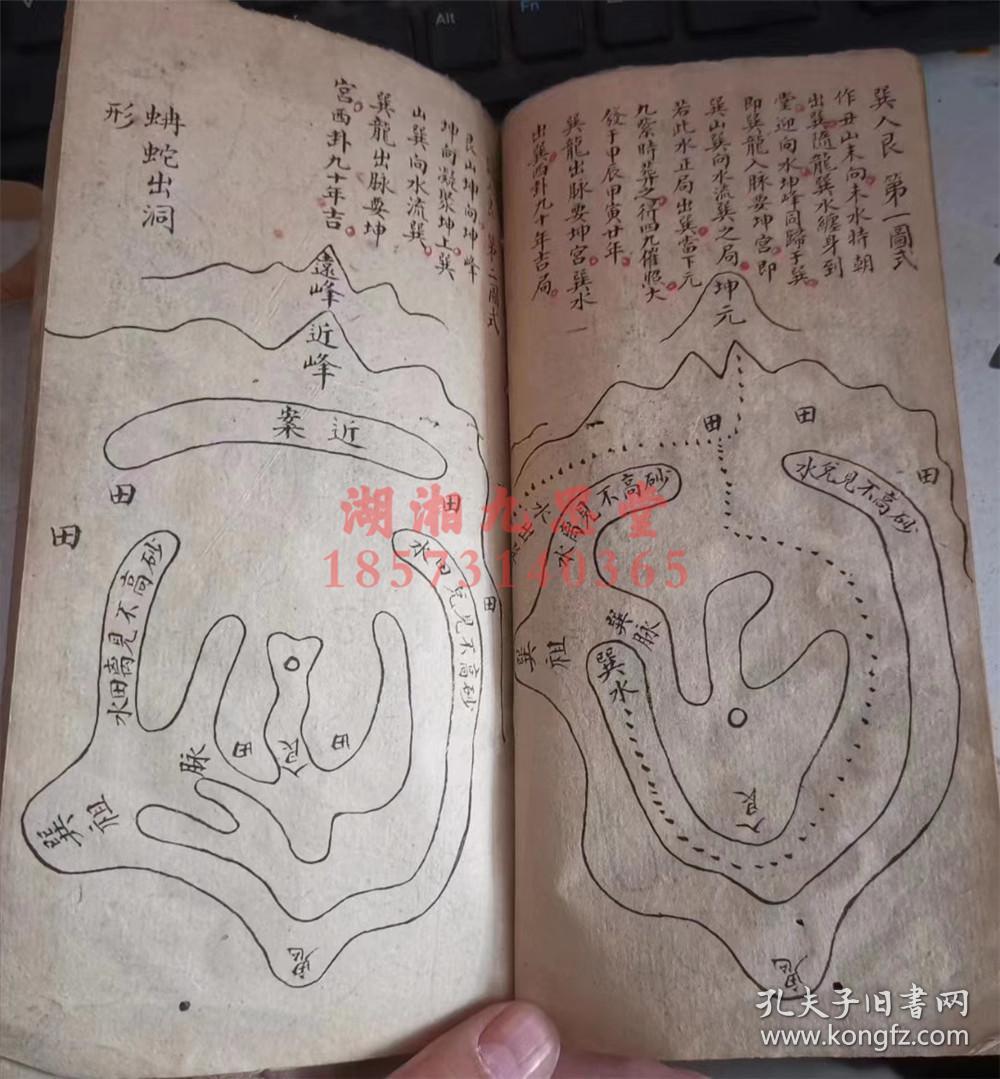 巽入艮 第一圖式
作丑山未向未水時朝
出巽隨龍巽水纏身到
堂迎向水坤峰同歸于巽
即巽龍入脉要坤宮即
巽山巽向水流巽之局
若此水正局出巽當下元
九紫時葬之行四九催照大
發于甲辰甲寅廿年
巽龍出脉要坤宮巽水
出巽西卦九十年吉局
坤元
田
田
田
砂高不見離水
水兌見不高砂
巽祖
巽脉
巽水
入艮
鬼
第二圖式
艮山坤向坤峰
坤向凝聚坤上巽
山巽向水流巽
巽龍出脉要坤
宮西卦九十年吉
蚺蛇出洞
形
遠峰
近峰
近案
田
田
田
田
砂高不見離田水
水田兌見不高砂
巽祖
脉
田
入艮
田
鬼
湖湘九思堂
18573140365
孔夫子旧書网
www.kongfz.com